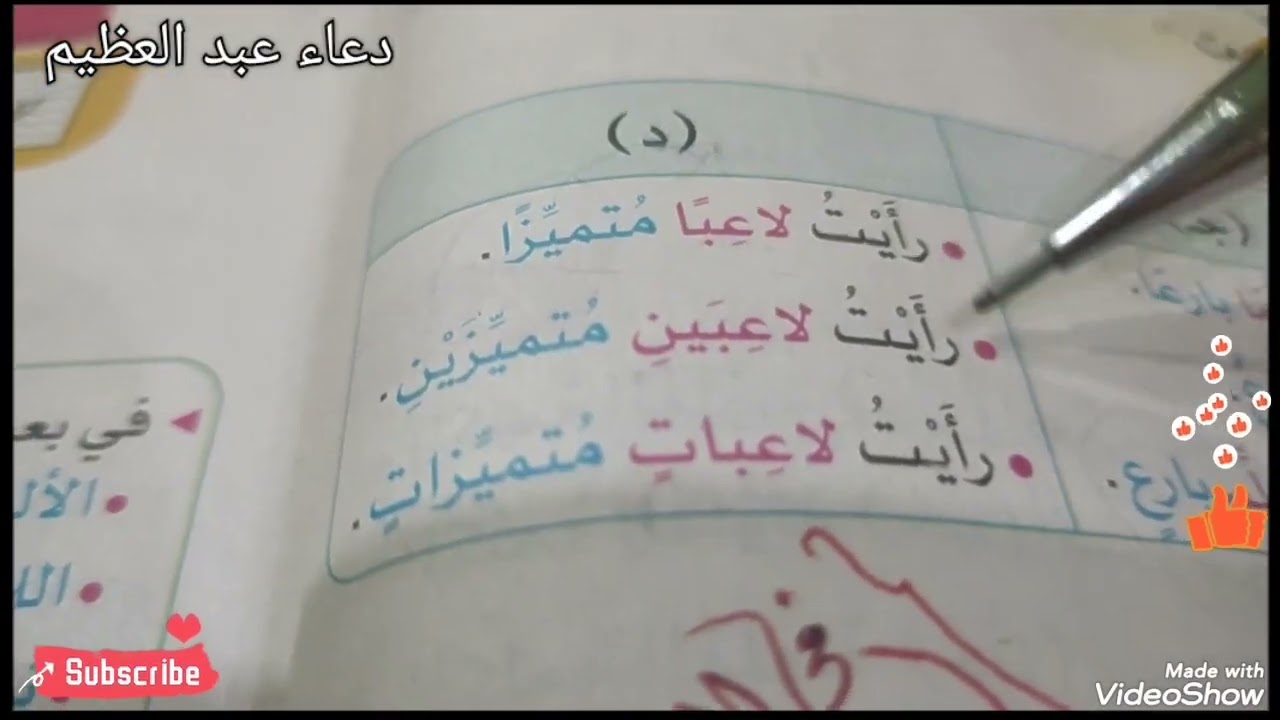 دعاء عبد العظيم
(د)
• رأَيْتُ لاعِبًا مُتميِّزًا.
• رأَيْتُ لاعِبَينِ مُتميِّزَيْنِ.
• رأَيْتُ لاعِباتٍ مُتميِّزاتٍ.
بارعًا.
بارعٍ.
في بع
Subscribe
Made with
VideoShow